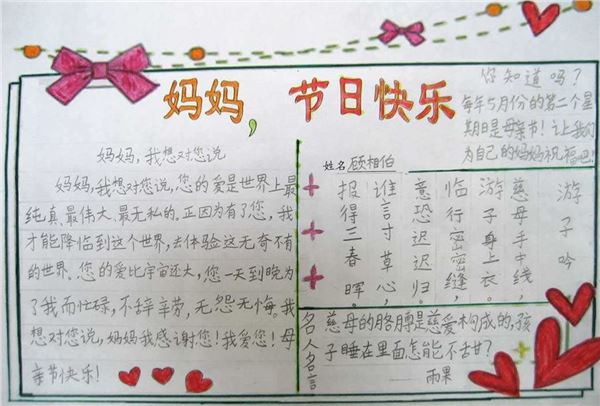 妈妈,节日快乐
你知道吗?
每年5月份的第二个星
期日是母亲节!让我们
为自己的妈妈祝福吧!
妈妈,我想对您说
妈妈,我想对您说,您的爱是世界上最
纯真、最伟大、最无私的。正因为有了您,我
才能降临到这个世界,去体验这无奇不有
的世界。您的爱比宇宙还大,您一天到晚为
了我而忙碌,不辞辛劳,无怨无悔。我
想对您说,妈妈我感谢您!我爱您!母
亲节快乐!
姓名 顾相伯
游子吟
慈母手中线,
游子身上衣。
临行密密缝,
意恐迟迟归。
谁言寸草心,
报得三春晖。
名人名言
慈母的胳膊是慈爱构成的,孩
子睡在里面怎能不甜?
——雨果